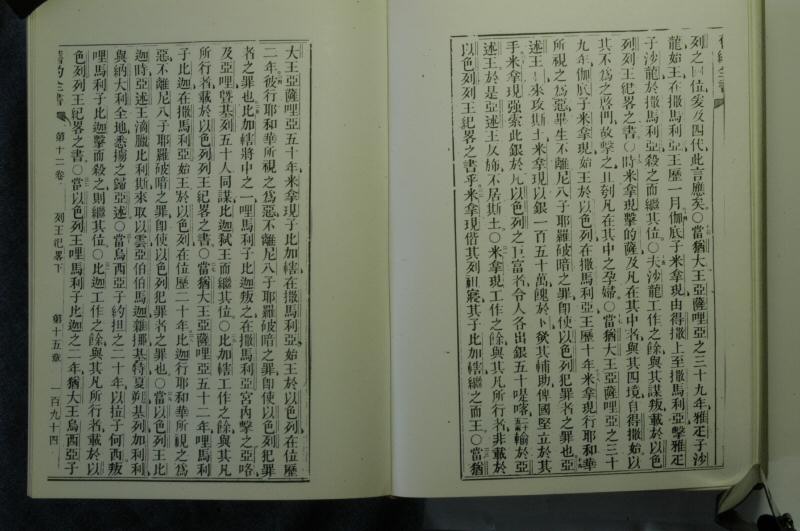 舊約全書
列之國位爰及四代此言應矣○當猶大王亞薩哩亞之三十九年雅疋子沙
龍始王在撒馬利亞王歷一月伽底子米拿現由得撒上至撒馬利亞擊雅疋
子沙龍於撒馬利亞殺之而繼其位○夫沙龍工作之餘與其謀叛載於以色
列列王紀畧之書○時米拿現擊的薩及凡在其中者與其四境自得撒始以
其不爲之啓門故擊之且刳凡在其中之孕婦○當猶大王亞薩哩亞之三十
九年伽底子米拿現始王於以色列在撒馬利亞王歷十年米拿現行耶和華
所視之爲惡畢生不離尼八子耶羅破暗之罪即使以色列犯罪者之罪也亞
述王來攻斯土米拿現以銀一百五十萬餽於卜欲其輔助俾國堅立於其
手米拿現強索此銀於凡以色列之巨富者令人各出銀五十是喀輸於亞
述王於是亞述王反旆不居斯土○米拿現工作之餘與其凡所行者非載於
以色列列王紀畧之書乎米拿現偕其列祖寢其子比加轄繼之而王○當猶
大王亞薩哩亞五十年米拿現子比加轄在撒馬利亞始王於以色列在位歷
二年彼行耶和華所視之爲惡不離尼八子耶羅破暗之罪即使以色列犯罪
者之罪也比加轄將中之一哩馬利子比迦叛之在撒馬利亞宮內擊之亞咯
及亞哩曁基列五十人同謀比迦弒王而繼其位○比加轄工作之餘與其凡
所行者載於以色列列王紀畧之書○當猶大王亞薩哩亞五十二年哩馬利
子比迦在撒馬利亞始王於以色列在位歷二十年比迦行耶和華所視之爲
惡不離尼八子耶羅破暗之罪即使以色列犯罪者之罪也○當以色列王比
迦時亞述王滴臘比利斯來取以雲亞伯伯馬迦雜挪基特夏基列加利利
與納大利全地悉擄之歸亞述○當烏西亞子約担之二十年以拉子何西叛
哩馬利子比迦擊而殺之則繼其位○比迦工作之餘與其凡所行者載於以
色列列王紀畧之書○當以色列王哩馬利子比迦之二年猶大王烏西亞子
舊約全書 第十二卷 列王紀畧下 第十五章 一百九十四